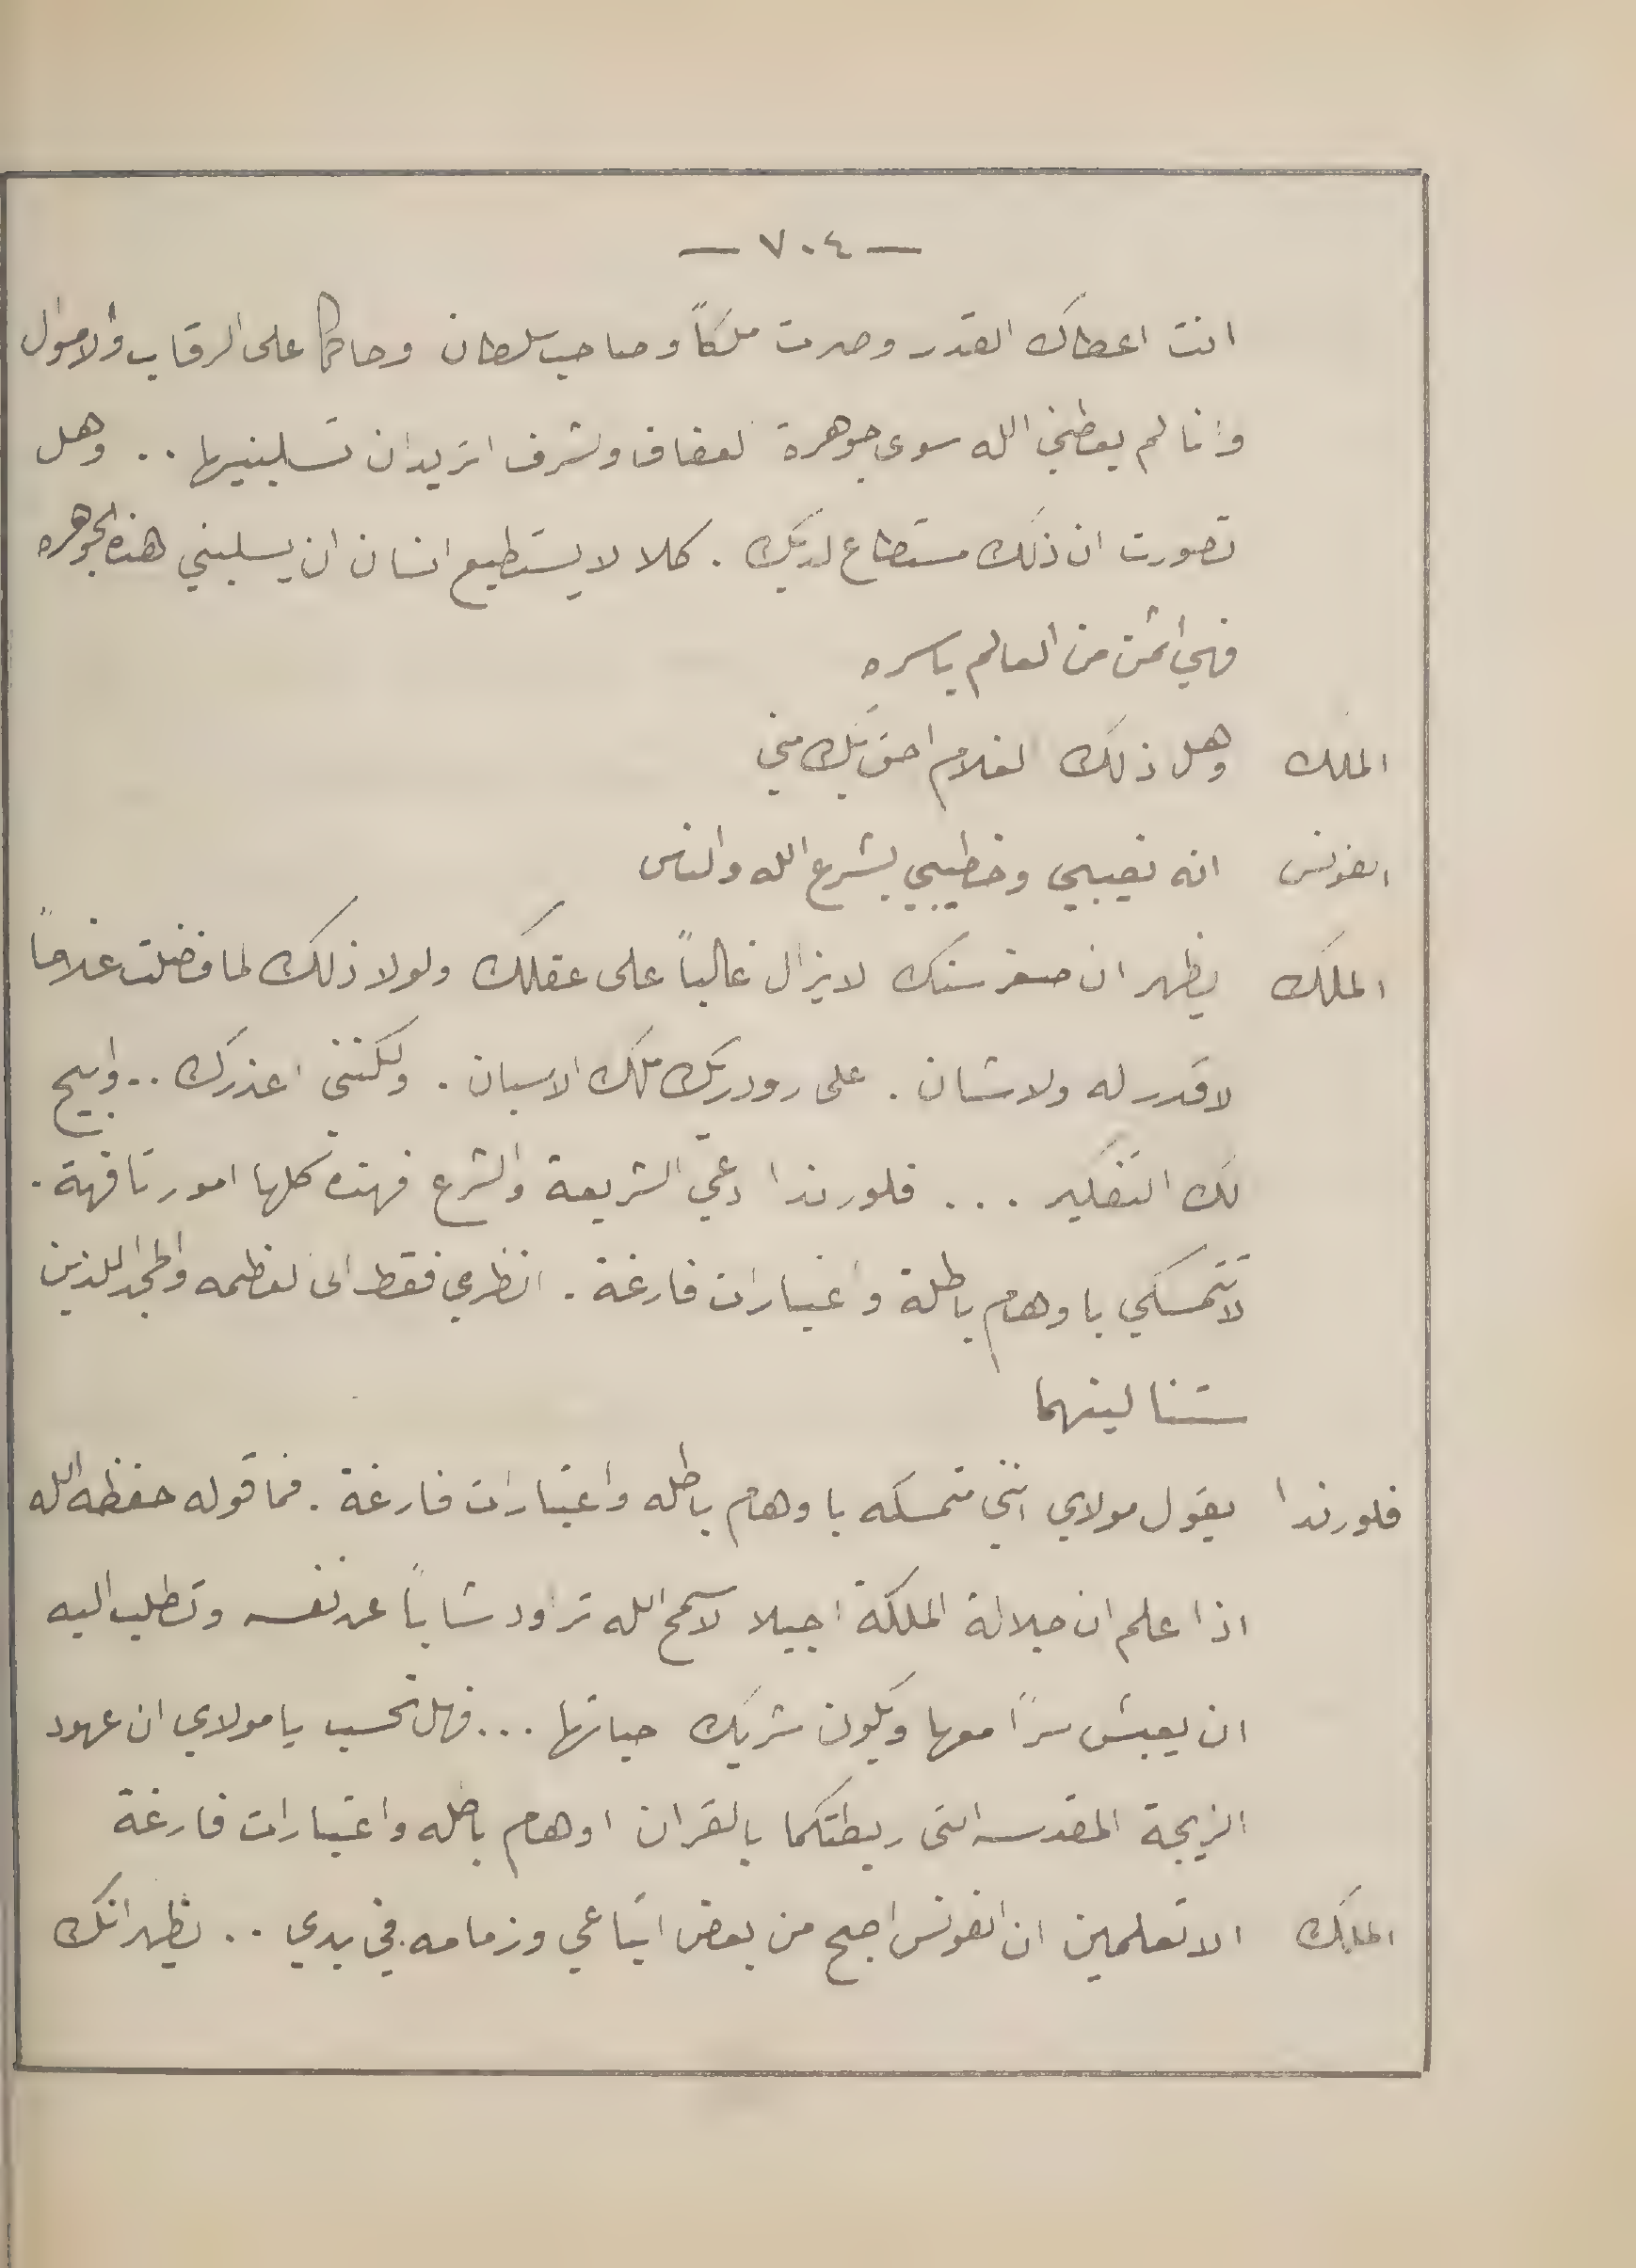 — ٧٠٤ —
انت اعطاك القدر وصرت ملكاً وصاحب سلطان وحاكماً على الرقاب والاموال
وانا لم يعطني الله سوى جوهرة العفاف والشرف اتريد ان تسلبنيها .. وهل
تصورت ان ذلك مستطاع لديك . كلا لا يستطيع انسان ان يسلبني هذه الجوهره
فهي اثمن من العالم باسره
الملك وهل ذلك الغلام احق بك مني
الفونس انه نصيبي وخطيبي بشرع الله والناس
الملك يظهر ان صغر سنك لا يزال غالباً على عقلك ولولا ذلك لما فضلت غلاماً
لا قدر له ولا شان . على رودريك ملك الاسبان . ولكنني اعذرك .. وابيح
لك التفكير ... فلورندا دعي الشريعة والشرع فهذه كلها امور تافهة .
لا تتمسكي باوهام باطلة واعتبارات فارغة . انظري فقط الى العظمه والمجد اللذين
ستنالينهما
فلورندا يقول مولاي انني متمسكه باوهام باطله واعتبارات فارغة . فما قوله حفظه الله
اذا علم ان جلالة الملكة اجيلا لا سمح الله تراود شاباً عن نفسه وتطلب اليه
ان يعيش سراً معها ويكون شريك حياتها ... فهل تحسب يا مولاي ان عهود
الزيجة المقدسه التى ربطتكما بالقران اوهام باطله واعتبارات فارغة
الملك الا تعلمين ان الفونس اصبح من بعض اتباعي وزمامه في يدي .. يظهر انك